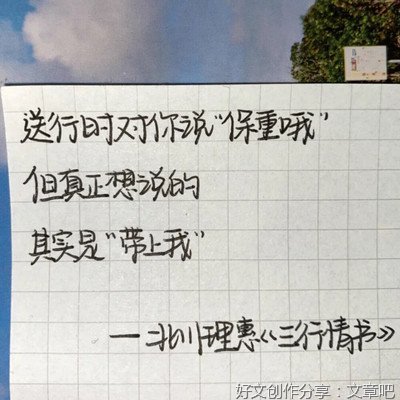 送行时对你说“保重哦”
但真正想说的
其实是“带上我”
——北川理惠《三行情书》
好文创作分享：文章吧